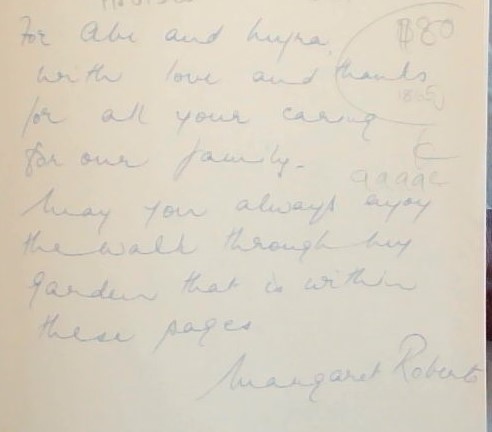 For Abe and Myra,
with love and thanks
for all your caring
for our family.
May you always enjoy
the walk through my
garden that is within
these pages
Margaret Roberts
$80